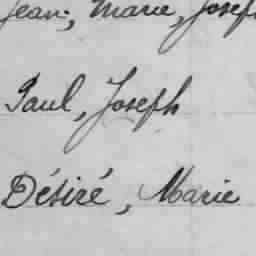 Jean, Marie, Joseph
Paul, Joseph
Désiré, Marie